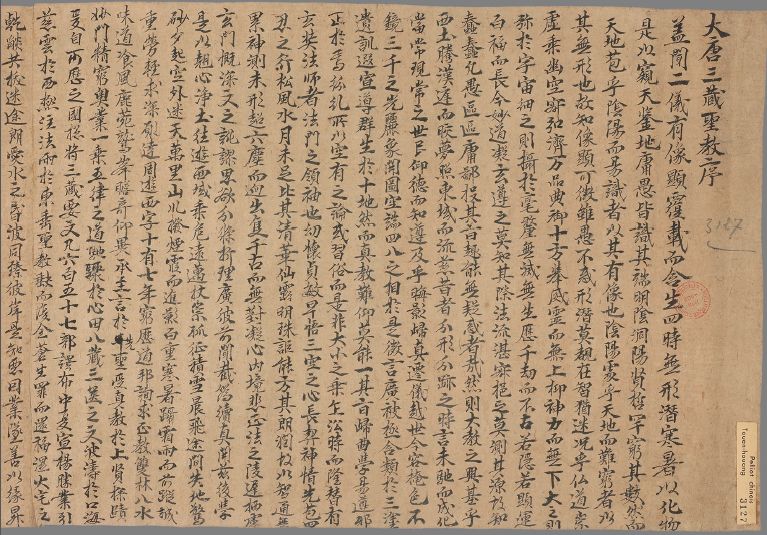 大唐三藏聖教之序
盖聞二儀有像顯覆載而含生四時無形潛寒暑以化物
是以窺天鑒地庸愚皆識其端明陰洞陽賢哲罕窮其數然而
天地苞乎陰陽而易識者以其有像也陰陽處乎天地而難窮者以
其無形也故知像顯可徵雖愚不惑形潛莫覩在智猶迷况乎仏道崇
虛乘幽空寂弘濟万品典御十方舉威靈而無上抑神力而無下大之則
弥於宇宙細之則攝於毫釐無滅無生歷千劫而不古若隱若顯運
百福而長今妙道凝玄遵之莫知其際法流湛寂挹之莫測其源故知
蠢蠢凡愚區區庸鄙投其旨趣能無疑惑者哉然則大教之興基乎
西土騰漢庭而皎夢照東域而流慈昔者分形分跡之時言未馳而成化
當常現常之世民仰德而知遵及乎晦影歸真遷儀越世金容掩色不
鏡三千之光麗象開圖空端四八之相於是微言廣被極含類於三塗
遺訓遐宣導群生於十地然而真教難仰莫能一其旨歸曲學易遵邪
正於焉紛糺所以空有之論或習俗而是非大小之乘乍訟時而隆替有
玄奘法師者法門之領袖也幼懷貞敏早悟三空之心長契神情先苞四
忍之行松風水月未足比其清華仙露明珠詎能方其朗潤故以智通無
累神測未形超六塵而迥出隻千古而無對凝心內境悲正法之陵遲栖慮
玄門慨深文之訛謬思欲分條析理廣彼前聞截偽續真開茲後學
是以翹心淨土往遊西域乘危遠邁扙策孤征積雪晨飛途間失地驚
砂夕起空外迷天萬里山川撥煙霞而進影百重寒暑躡霜雨而前蹤誠
重勞輕求深願達周遊西宇十有七年窮歷道邦詢求正教雙林八水
味道飡風鹿菀鷲峯瞻奇仰異承至言於先聖受真教於上賢探賾
妙門精窮奧業一乘五律之道馳驟於心田八藏三篋之文波濤於口海
爰自所歷之國揔將三藏要文凡六百五十七部譯布中夏宣楊勝業引
慈雲於西極注法雨於東垂聖教缺而復全蒼生罪而還福濕火宅之
乾燄共拔迷途朗愛水之昏波同臻彼岸是知惡因業墜善以緣昇
3127
Pelliot chinois
Touen-houang
3127